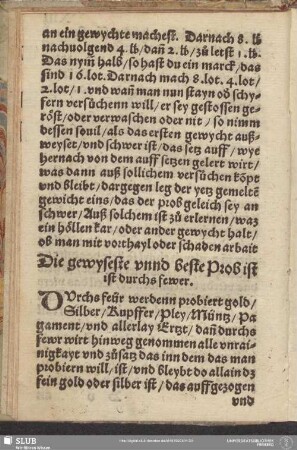 an ein gewychte machest. Darnach 8. lb
nachuolgend 4. lb/ dañ 2. lb/ zů letst 1. lb.
Das nym̃ halb/ so hast du ein marck/ das
sind 16. lot. Darnach mach 8. lot. 4. lot/
2. lot/ 1. vnd wañ man nun stayn oð schy-
fern versůchenn will/ er sey gestossen ge-
röst/ oder verwaschen oder nit/ so nimm
dessen souil/ als das ersten gewycht auß-
weyset/ vnd schwer ist/ das setz auff/ wye
hernach von dem auff setzen gelert wirt/
was dann auß sollichem versůchen köpt
vnd bleibt/ dargegen leg der yetz gemeltē
gewicht eins/ das der prob geleich sey an
schwer/ Auß solchem ist zů erlernen/ waz
ein höllen kar/ oder ander gewycht halt/
ob man mit vorthayl oder schaden arbait
Die gewyseste vnnd beste Prob ist
ist durchs fewer.
DUrchs feür werdenn probiert gold/
Silber/ Kupffer/ Pley/ Müntz/ Pa
gament/ vnd allerlay Ertzt/ dañ durchs
fewr wirt hinweg genommen alle vnrai-
nigkayt vnd zůsatz das inn dem das man
probiern will/ ist/ vnd bleybt do allain dz
fein gold oder silber ist/ das auffgezogen
vnd
SLUB
Wir führen Wissen.